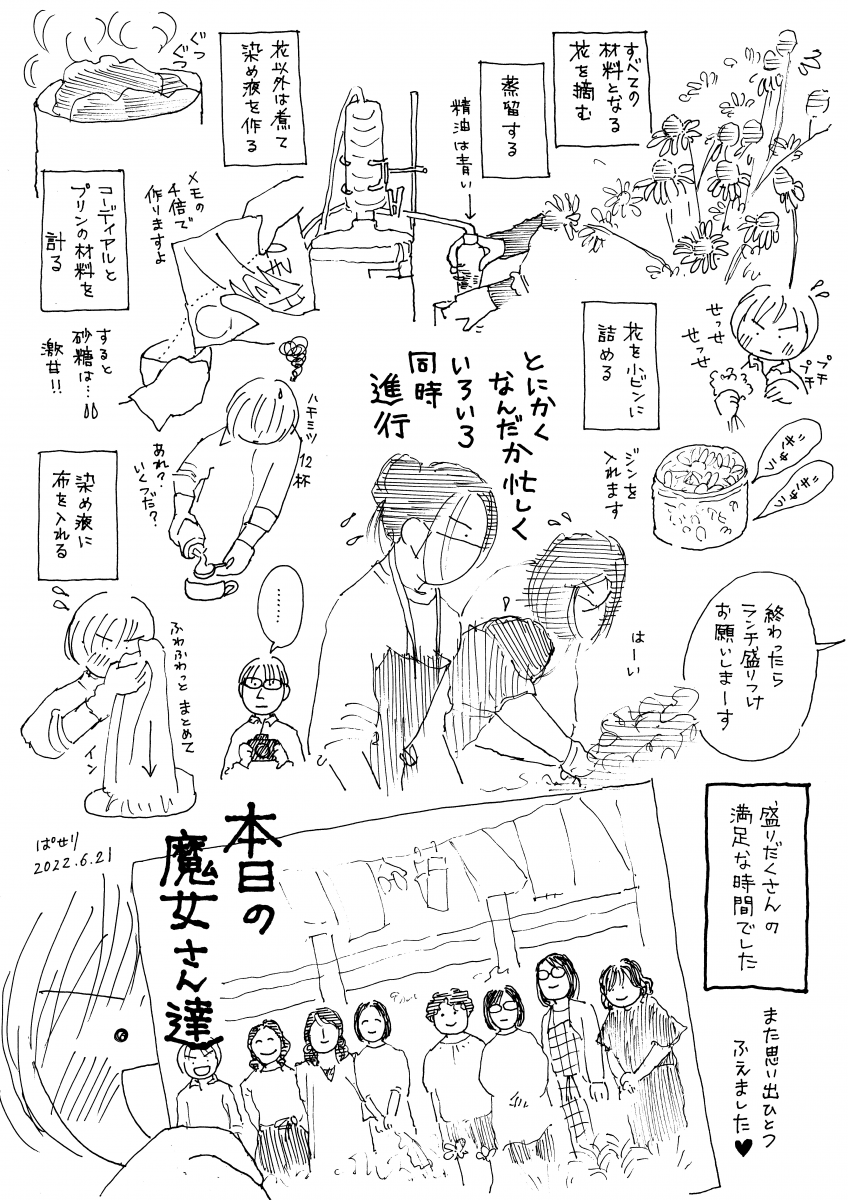 すべての
材料となる
花を摘む
蒸留する
精油は青い→
花以外は煮て
染め液を作る
ぐつ
ぐつ
せっせ
せっせ
プチ
プチ
花を小ビンに
詰める
ジンを
入れます
コーディアルと
プリンの材料を
計る
メモの
4倍で
作りますよ
すると
砂糖は…
激甘!!
ハチミツ
12杯
あれ?
いくつだ?
とにかく
なんだか忙しく
いろいろ
同時
進行
染め液に
布を入れる
ふわふわっと まとめて
イン
………
はーい
終わったら
ランチ盛りつけ
お願いしまーす
盛りだくさんの
満足な時間でした
また思い出ひとつ
ふえました♥
本日の
魔女さん達
ぱせり
2022.6.21